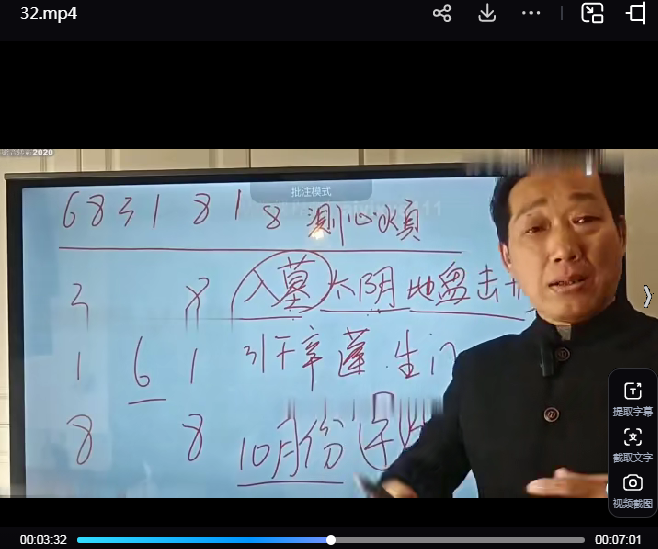 32.mp4
2020
批注模式
6 8 3 1 8 1 8 测心烦
3 8 入墓 太阴 地盘击
1 6 1 引干辛蓬.生门
8 8 10月份(子
提取字幕
截取文字
视频截图
00:03:32
00:07:01